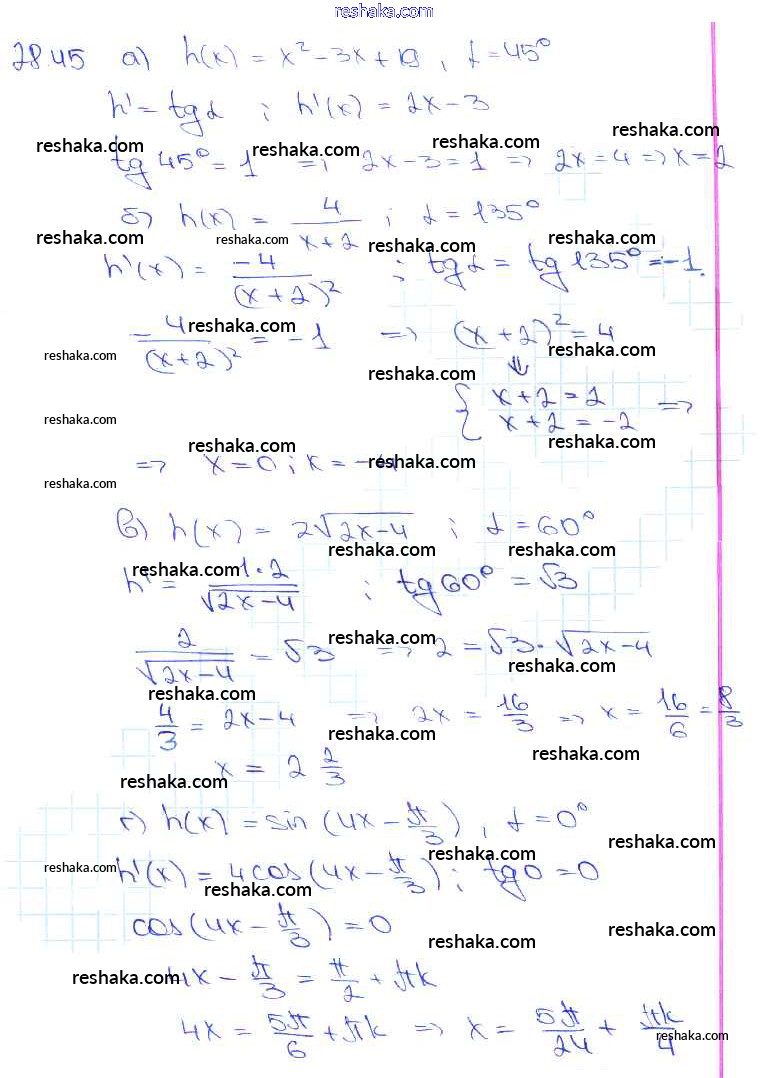 reshaka.com
28.45 а) h(x) = x² – 3x + 19, α = 45°
h' = tg α ; h'(x) = 2x – 3
reshaka.com reshaka.com reshaka.com reshaka.com
tg 45° = 1 => ; 2x – 3 = 1 => 2x = 4 => x = 2
б) h(x) = 4/(x+2) ; α = 135°
reshaka.com reshaka.com reshaka.com reshaka.com
h'(x) = –4/(x+2)² ; tg α = tg 135° = –1.
reshaka.com reshaka.com
–4/(x+2)² = –1 => (x+2)² = 4
reshaka.com reshaka.com reshaka.com
⇓
{ x+2 = 2
x+2 = –2 =>
reshaka.com reshaka.com reshaka.com
=> x = 0 ; x = –4
reshaka.com reshaka.com
в) h(x) = 2√(2x–4) ; α = 60°
reshaka.com reshaka.com reshaka.com
h' = 1·2/√(2x–4) ; tg 60° = √3
reshaka.com
2/√(2x–4) = √3 => 2 = √3 · √(2x–4)
reshaka.com reshaka.com
4/3 = 2x – 4 => 2x = 16/3 => x = 16/6 = 8/3
reshaka.com reshaka.com
x = 2 2/3
reshaka.com
г) h(x) = sin (4x – π/3), α = 0°
reshaka.com reshaka.com
h'(x) = 4cos(4x – π/3) ; tg 0 = 0
reshaka.com reshaka.com
cos(4x – π/3) = 0
reshaka.com reshaka.com
4x – π/3 = π/2 + πk
reshaka.com
4x = 5π/6 + πk => x = 5π/24 + πk/4
reshaka.com